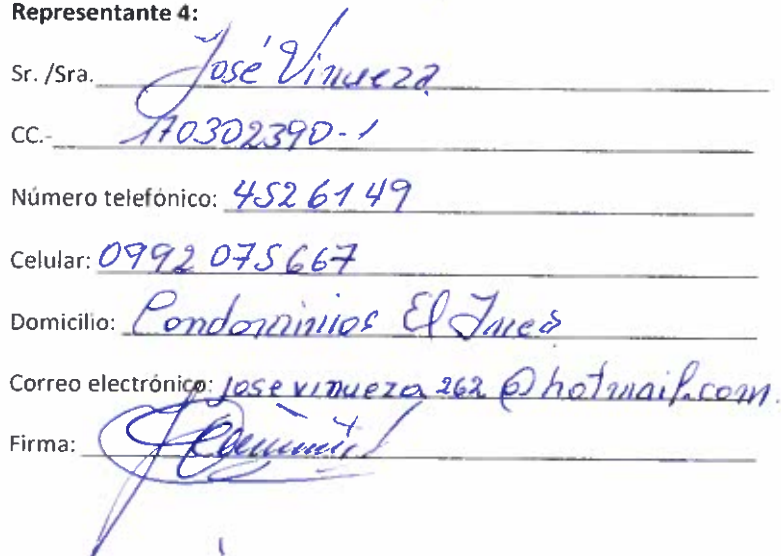 Representante 4:
Sr. /Sra. José Vinueza
CC.- 170302390-1
Número telefónico: 4526149
Celular: 0992 075667
Domicilio: Condominios El Inca
Correo electrónico: josevinueza262@hotmail.com.
Firma: